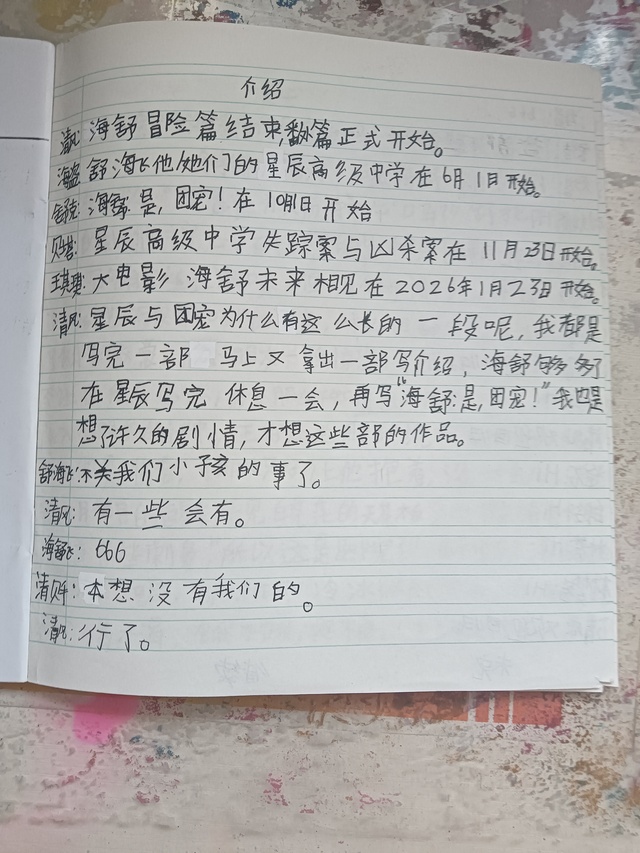 介绍
清风: 海舒冒险篇结束,番外篇正式开始。
海盗: 舒海飞他/她们的星辰高级中学在6月1日开始。
舒克: 海舒:是,团宠!在10月1日开始
贝塔: 星辰高级中学失踪案与凶杀案在11月23日开始。
王其琪: 大电影 海舒未来相见在2026年1月23日开始。
清风: 星辰与团宠为什么有这么长的一段呢,我都是
写完一部 马上又拿出一部写介绍,海舒够多了
在星辰写完 休息一会,再写“海舒:是,团宠!”我也是
想了许久的剧情,才想这些部的作品。
舒海飞: 不关我们小孩的事了。
清风: 有一些会有。
海舒飞: 666
清贝千: 本想没有我们的。
清风: 行了。